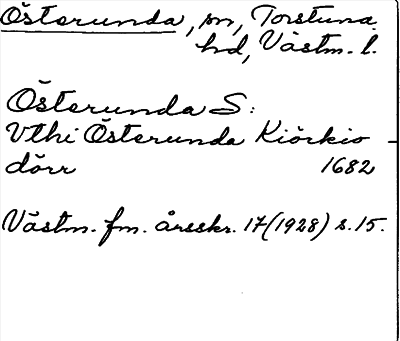 Österunda, sn, Torstuna
hd, Västm. l.
Österunda S:
Vthi Österunda Kiörkio
dörr 1682
Västm. fm. årsskr. 17 (1928) s. 15.